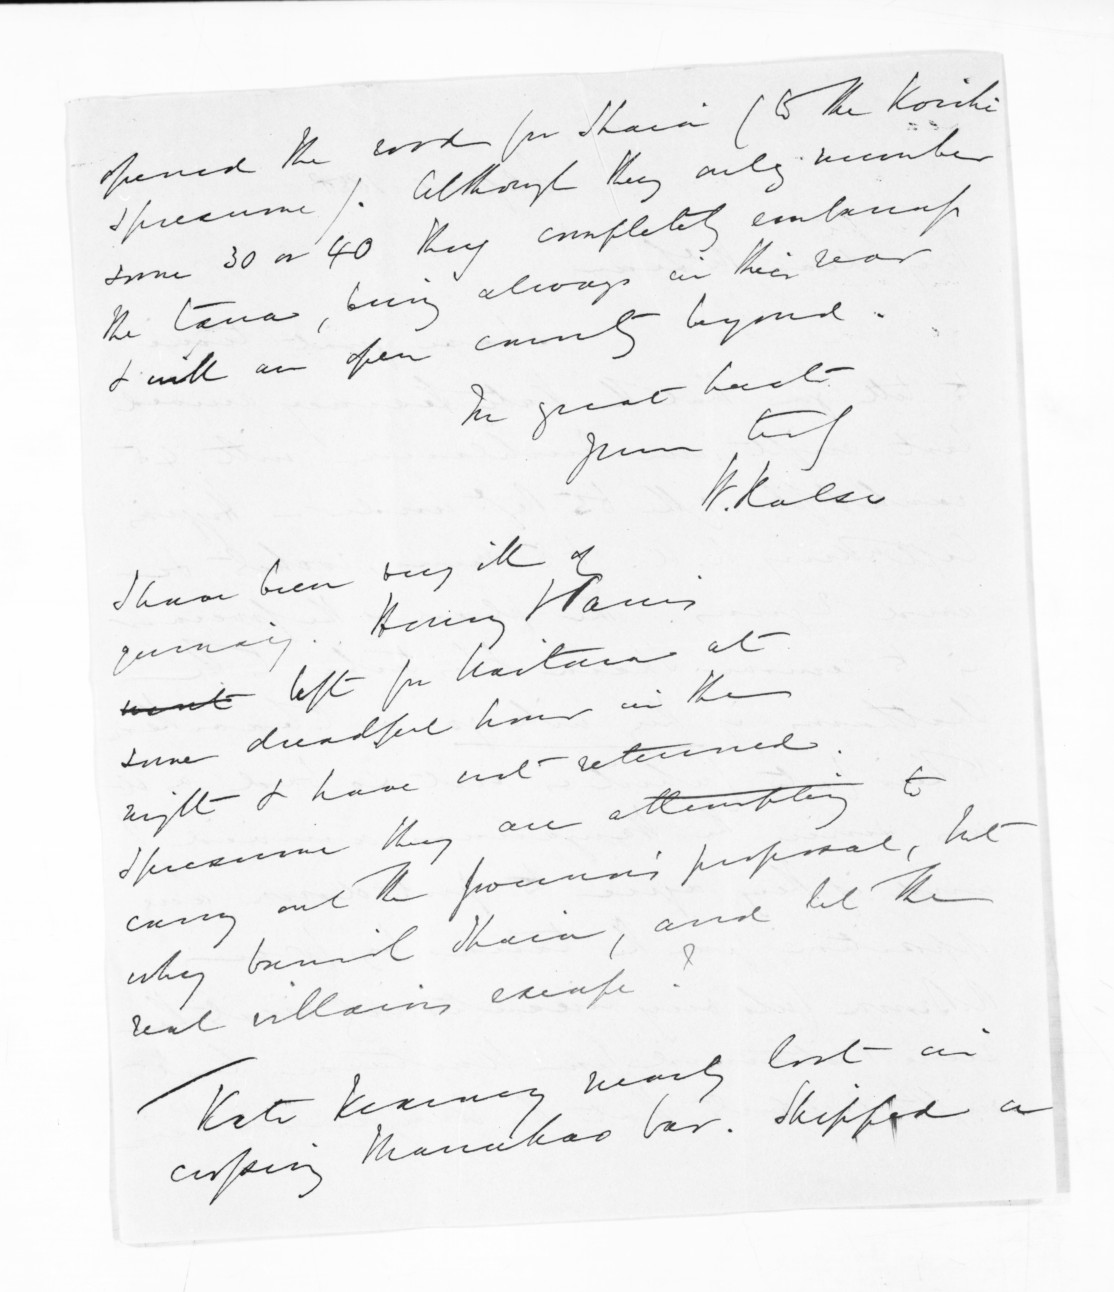 opened the road for Ihaia (to the Karihi
I presume). Although they only number
some 30 or 40 they completely embarrass
the taua, being always in their rear
& with an open country beyond.
In great haste
yours truly
W. Halse
I have been very ill of
quinsy. Henry & Parris
went left for Waitara at
some dreadful hour in the
night & have not returned.
I presume they are attempting to
carry out the Governor's proposal, but
why banish Ihaia, and let the
real villains escape?
Kate Kearney nearly lost in
crossing Manukao bar. Shipped a